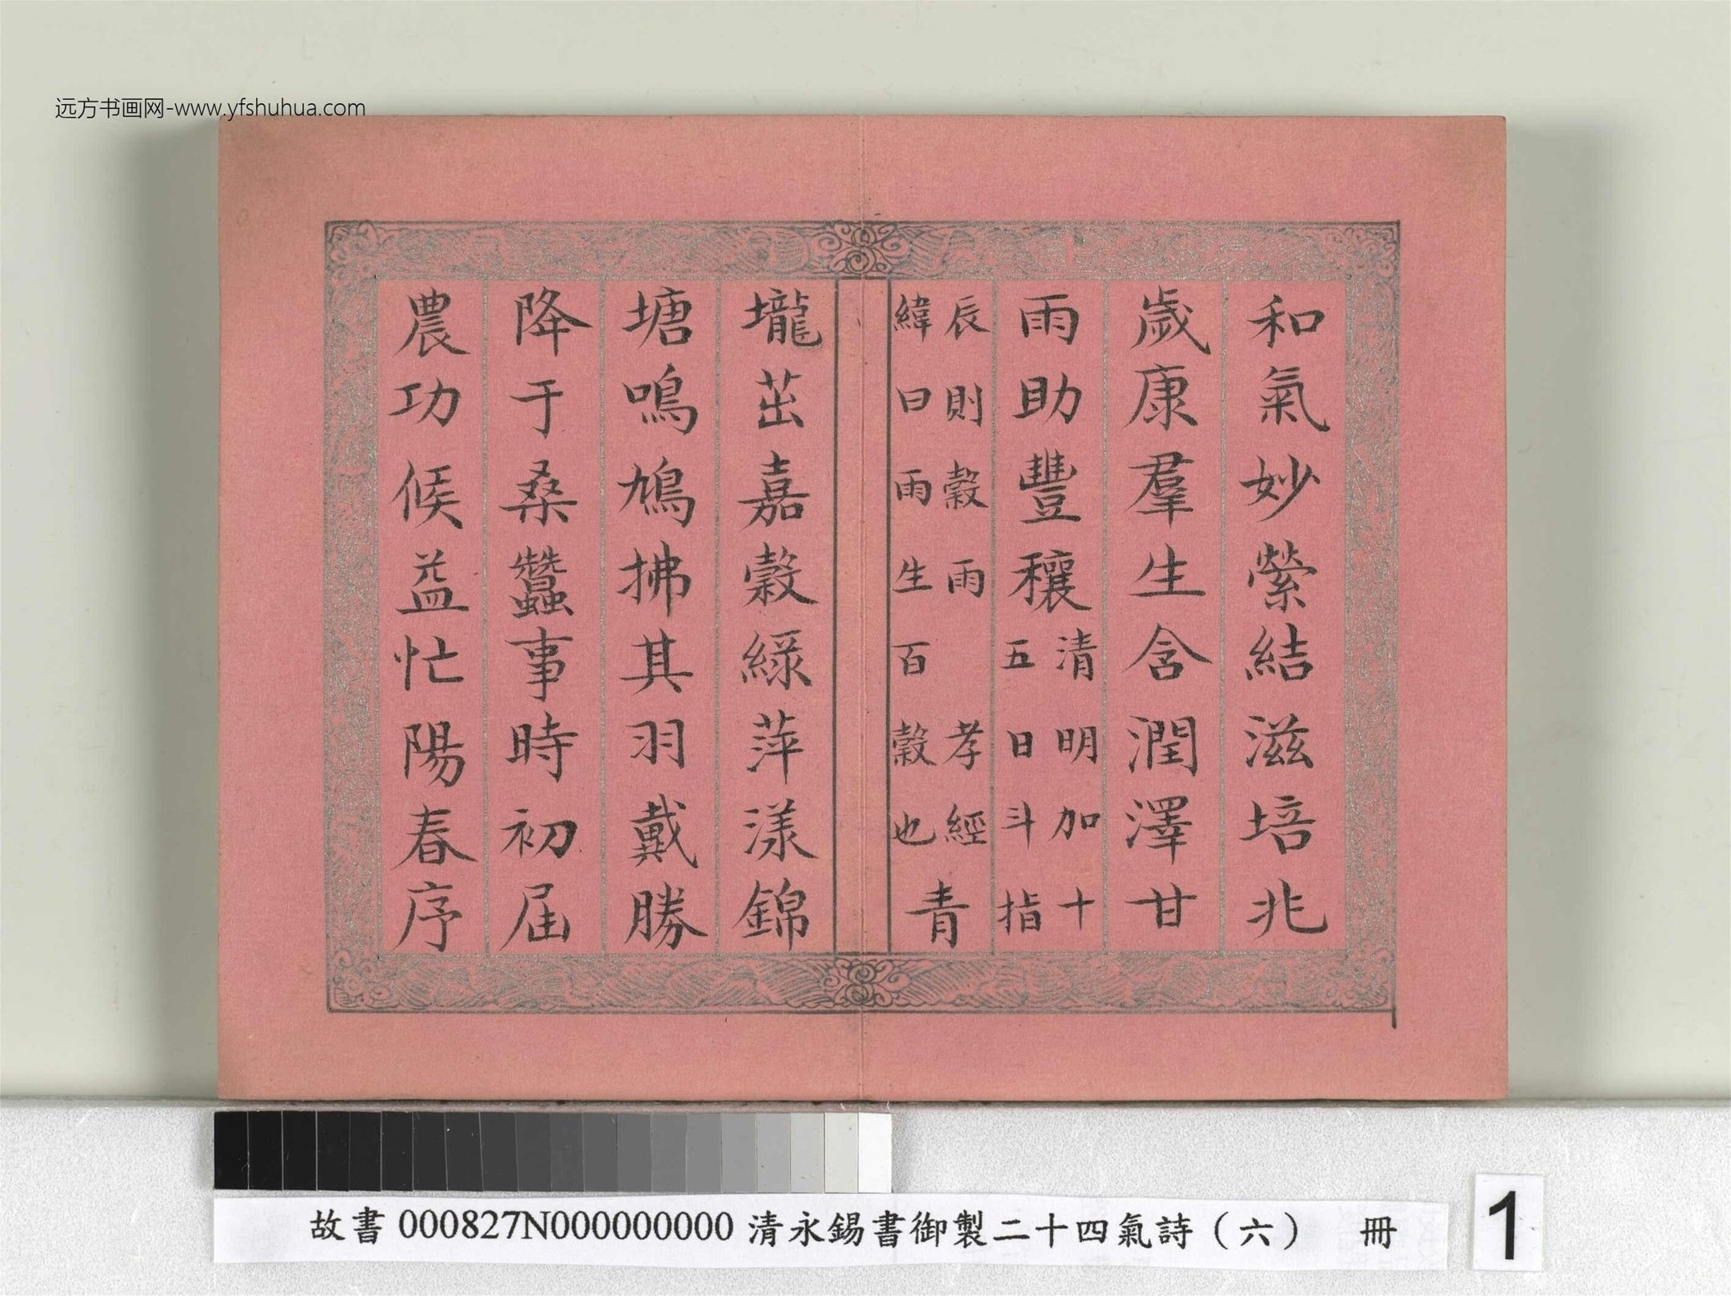 远方书画网-www.yfshuhua.com
和氣妙縈結滋培兆
歲康羣生含潤澤甘
雨助豐穰清明加十
五日斗指
辰則穀雨 孝經
緯曰雨生百穀也青
壠茁嘉穀綠萍漾錦
塘鳴鳩拂其羽戴勝
降于桑蠶事時初屆
農功候益忙陽春序
故書 000827N000000000 清永錫書御製二十四氣詩（六） 冊
1